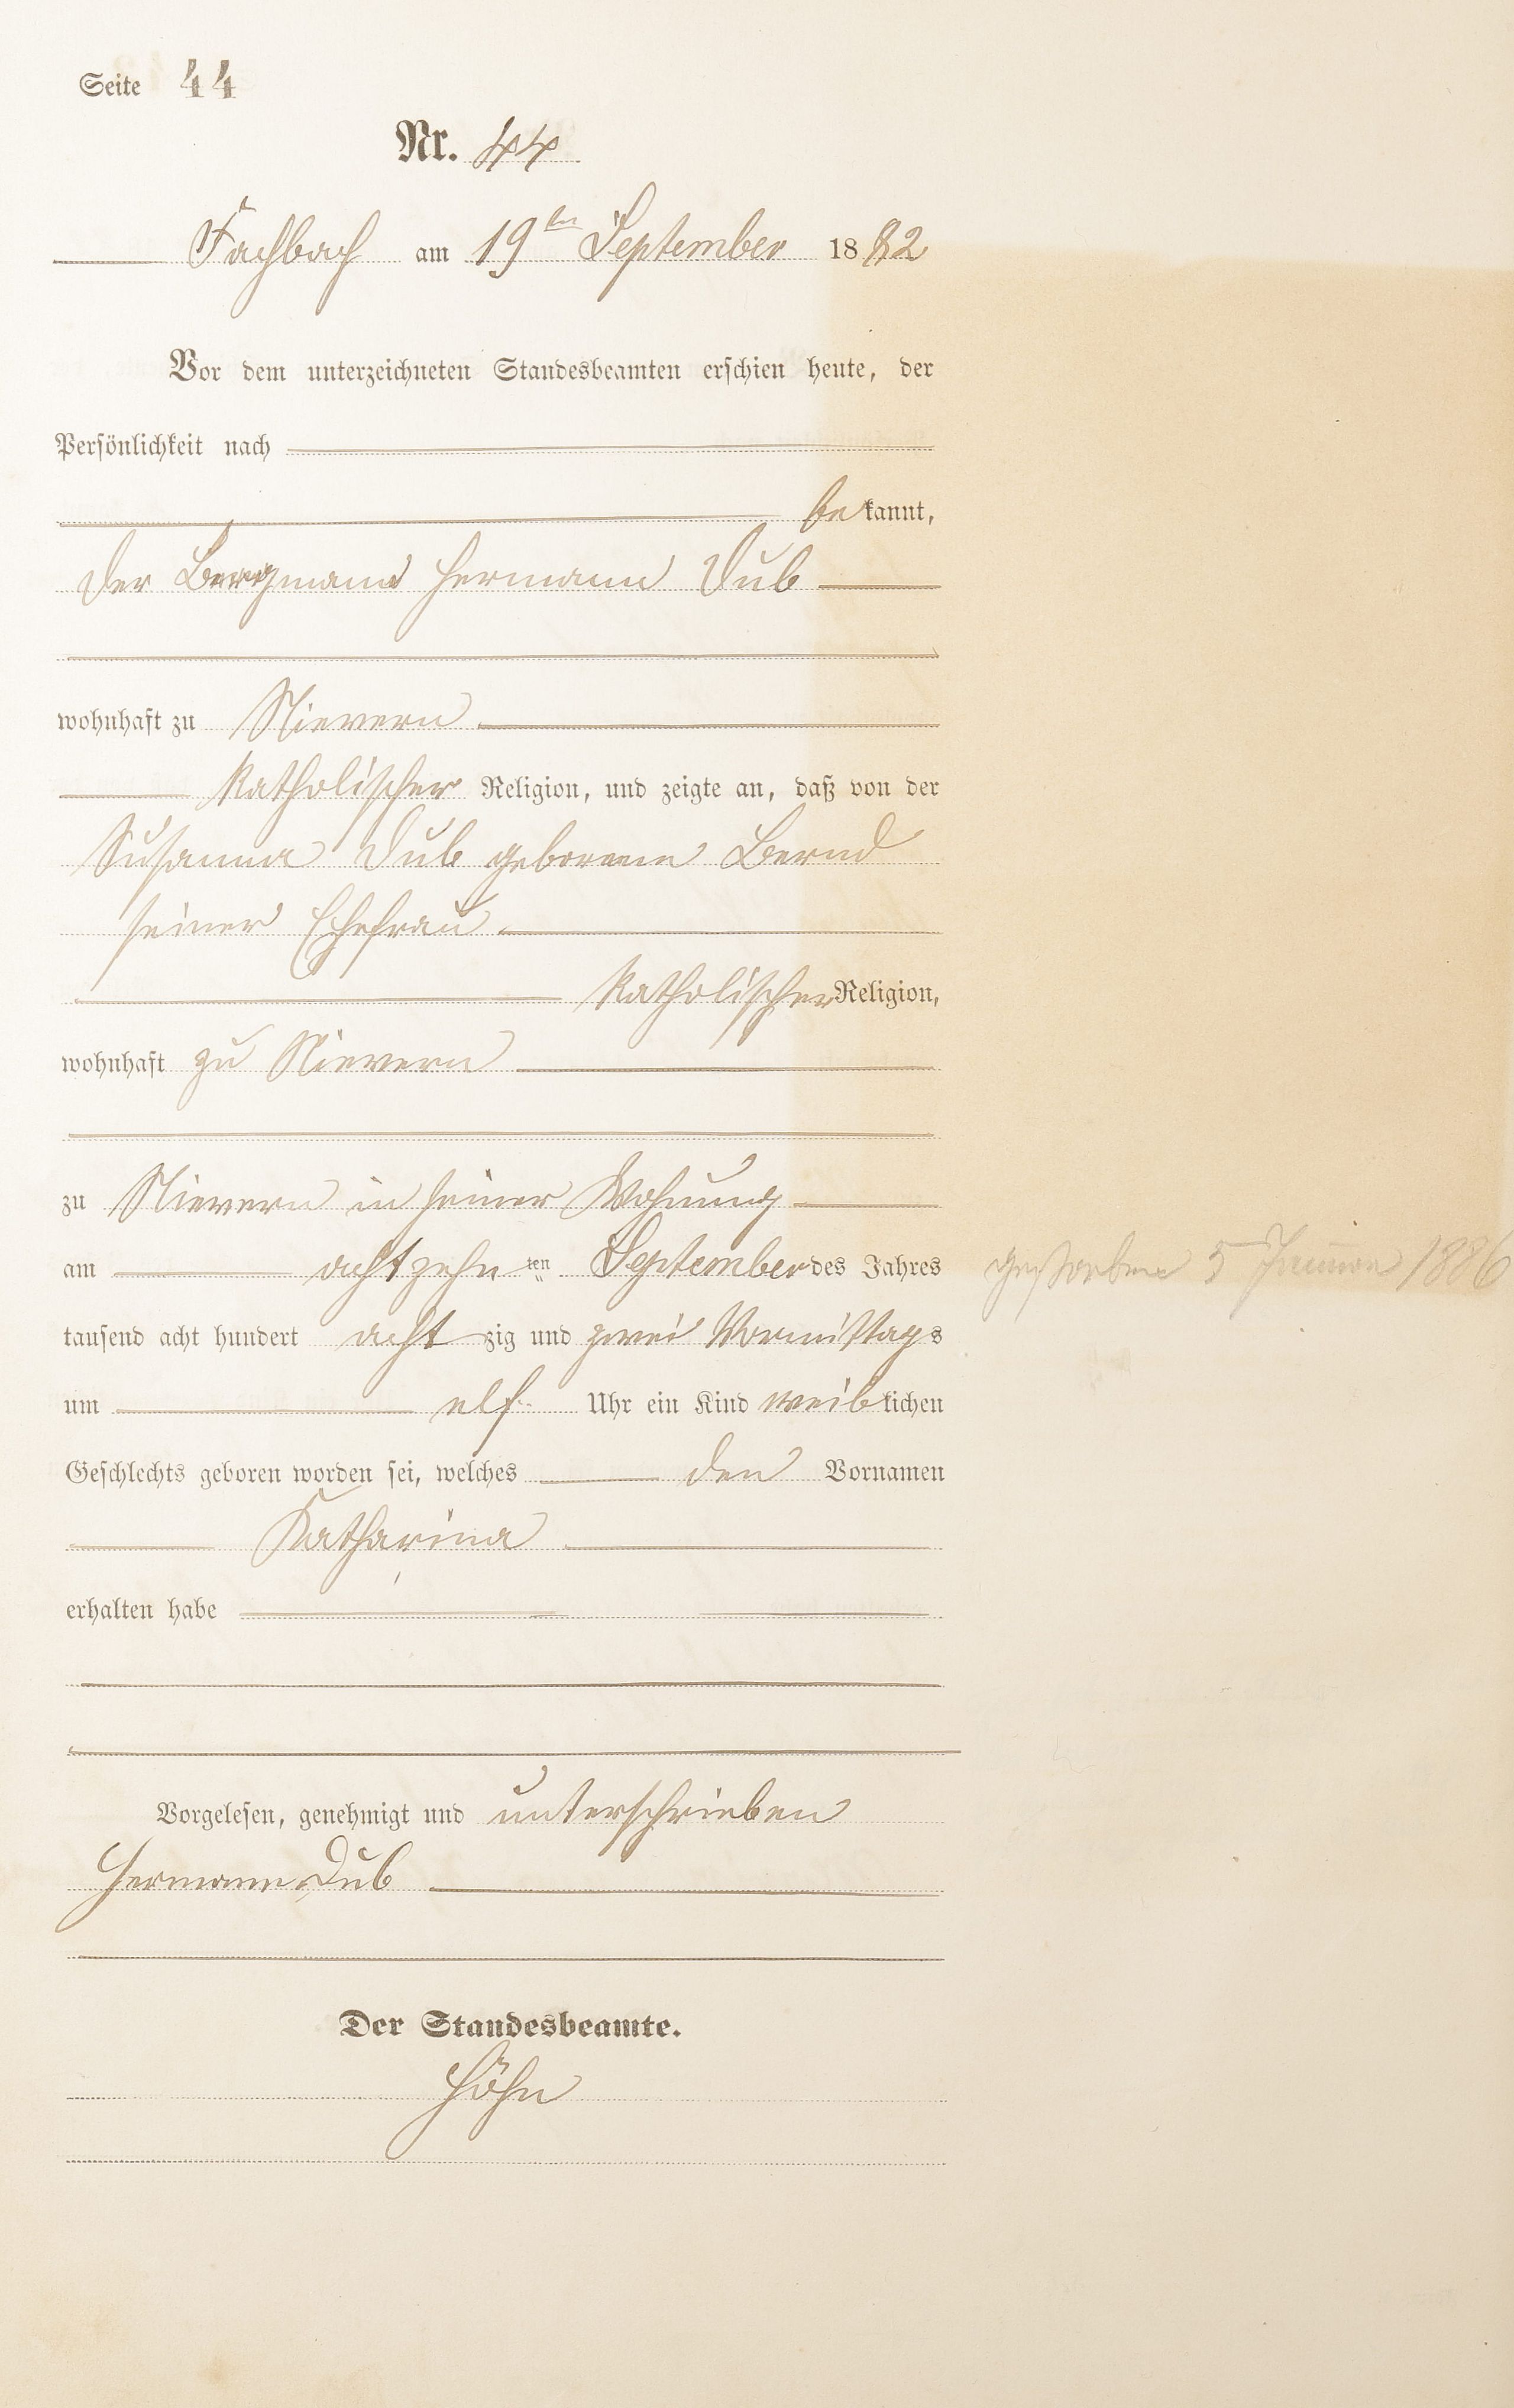 Seite 44
Nr. 44
Fachbach am 19ten September 1882
Vor dem unterzeichneten Standesbeamten erschien heute, der
Persönlichkeit nach
bekannt,
der Bergmann Hermann Dub
wohnhaft zu Nievern
katholischer Religion, und zeigte an, daß von der
Susanna Dub geborenen Bernd
seiner Ehefrau
katholischer Religion,
wohnhaft zu Nievern
zu Nievern in seiner Wohnung
am achtzehnten September des Jahres
tausend acht hundert achtzig und zwei Vormittags
um elf Uhr ein Kind weiblichen
Geschlechts geboren worden sei, welches den Vornamen
Katharina
erhalten habe
gestorben 5 Januar 1886
Vorgelesen, genehmigt und unterschrieben
Hermann Dub
Der Standesbeamte.
Höhn